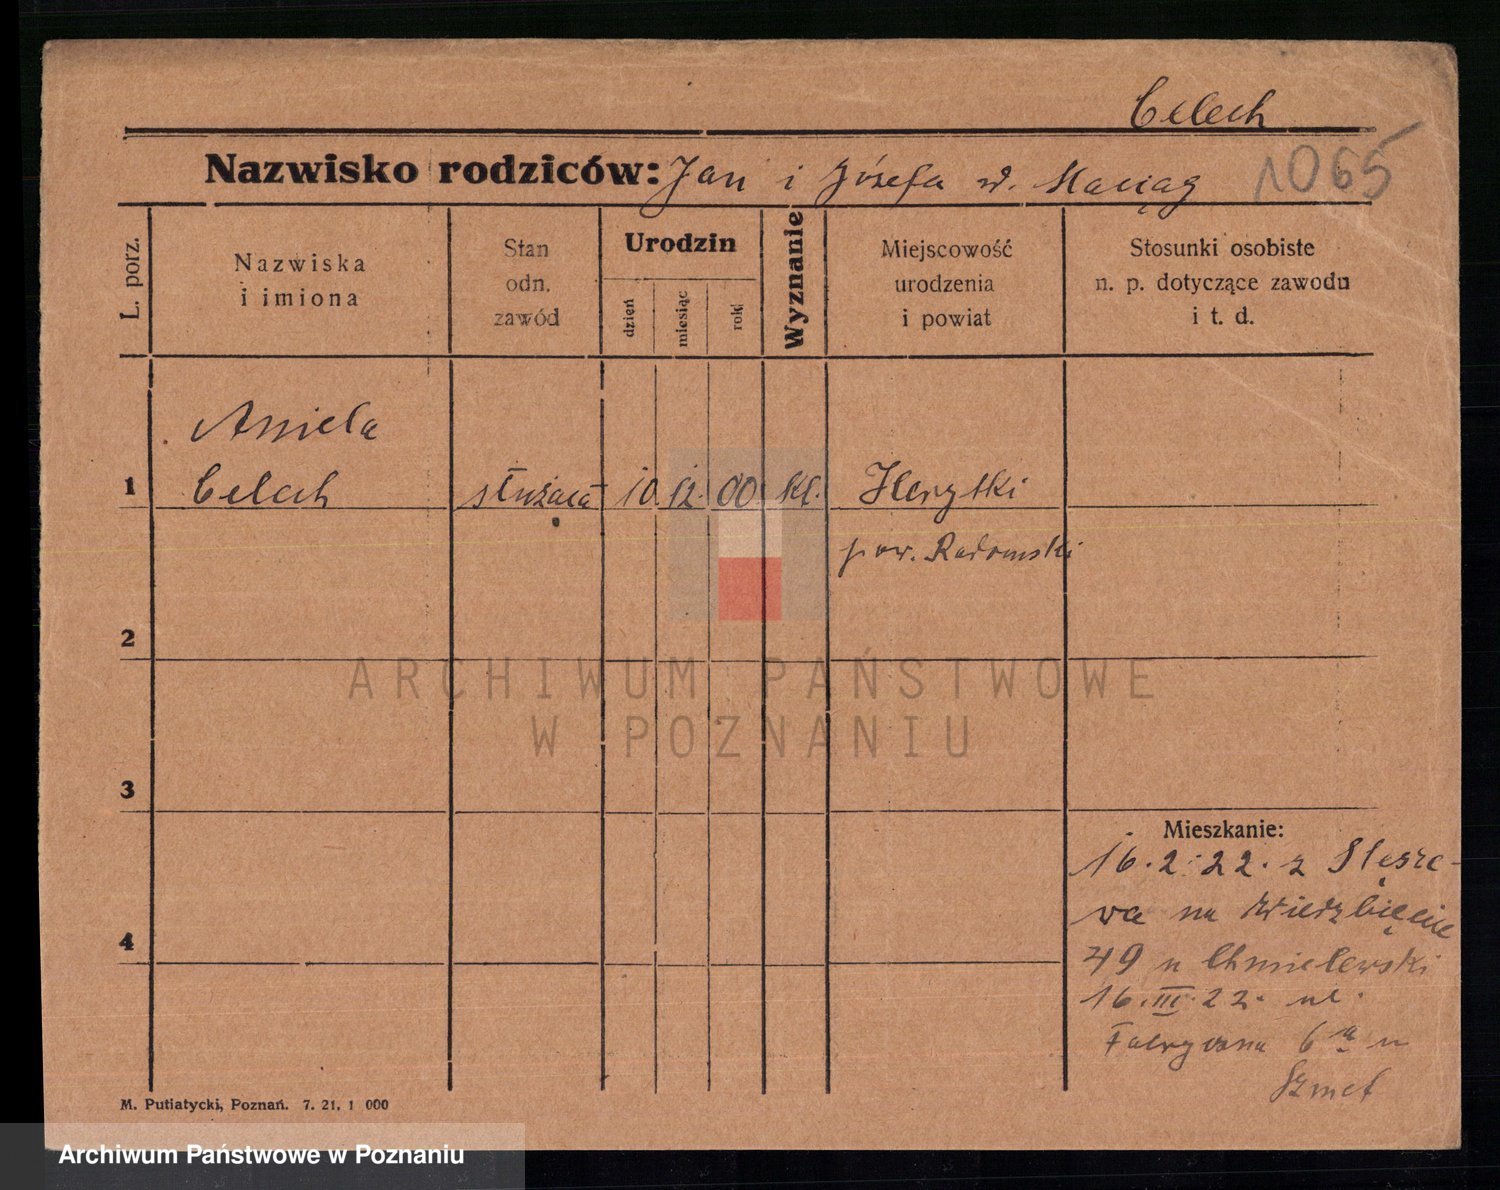 Celech
Nazwisko rodziców: Jan i Józefa d. Maciąg 1065
L. porz.
Nazwiska
i imiona
Stan
odn.
zawód
Urodzin
dzień
miesiąc
rok
Wyznanie
Miejscowość
urodzenia
i powiat
Stosunki osobiste
n. p. dotyczące zawodu
i t. d.
Aniela
1 Celech służąca 10 12. 00 kt.
pow. Radomski
2
3
Mieszkanie:
16.2.22. z Słęsze-
wa na Zwierzbięcice
4
49 u Chmielewski
16.III.22. ul.
Fabryczna 6a u
M. Putiatycki, Poznań. 7. 21, 1 000
ARCHIWUM PAŃSTWOWE
W POZNANIU
Archiwum Państwowe w Poznaniu